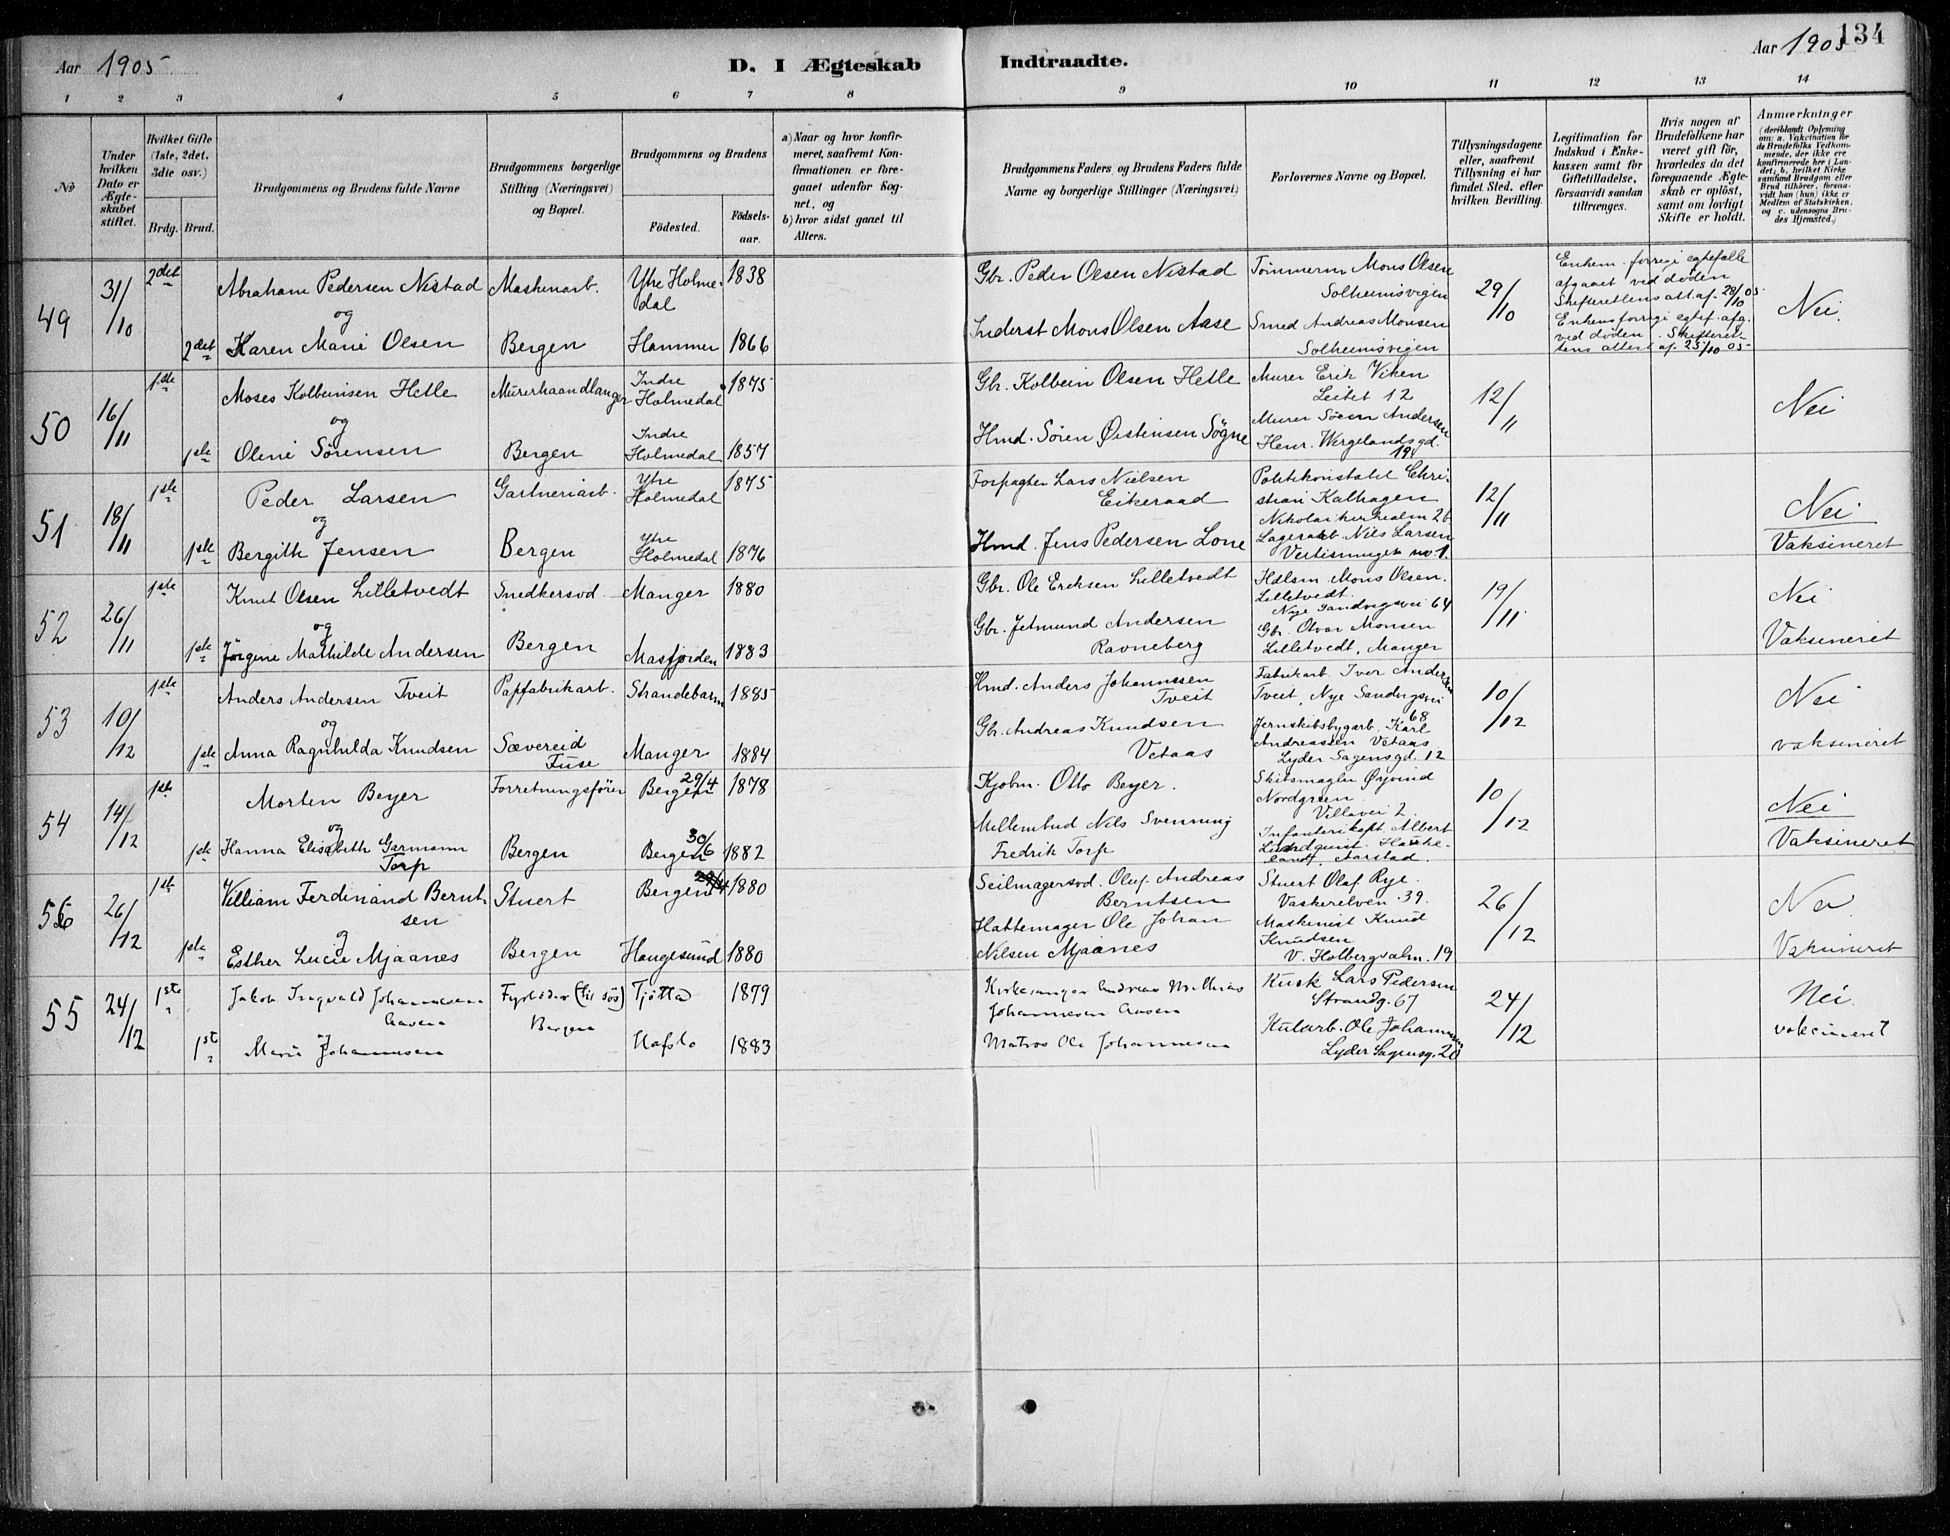 Aar 1905 D. I Ægteskab Indtraadte. Aar 1905 134
1 2 3 4 5 6 7 8 9 10 11 12 13 14
No
Under hvilken Dato er Ægteskabet stiftet.
Hvilket Gifte (1ste, 2det, 3die osv.)
Brdg. Brud.
Brudgommens og Brudens fulde Navne
Brudgommens borgerlige Stilling (Næringsvei) og Bopæl.
Brudgommens og Brudens
Födested. Födselsaar.
a) Naar og hvor konfirmeret, saafremt Konfirmationen er foregaaet udenfor Sognet, og
b) hvor sidst gaaet til Alters.
Brudgommens Faders og Brudens Faders fulde Navne og borgerlige Stillinger (Næringsvei)
Forlovernes Navne og Bopæl.
Tillysningsdagene eller, saafremt Tillysning ei har fundet Sted, efter hvilken Bevilling.
Legitimation for Indskud i Enkekassen samt for Giftetilladelse, forsaavidt saadan tiltrænges.
Hvis nogen af Brudefolkene har været gift før, hvorledes da det foregaaende Ægteskab er oplöst, samt om lovligt Skifte er holdt.
Anmærkninger
(deriblandt Oplysning om: a. Vakcination for de Brudefolks Vedkommende, der ikke ere konfirmerede her i Landet; b. hvilket Kirkesamfund Brudgom eller Brud tilhører, forsaavidt han (hun) ikke er Medlem af Statskirken, og c. udensogns Brudes Hjemsted.)
49 31/10 2det Abraham Pedersen Nistad Maskinarb. Ytre Holmedal 1838
og
2det Karen Marie Olsen Bergen Hammer 1866
Gbr. Peder Olsen Nistad
Inderst Mons Olsen Aase
Tömmerm Mons Olsen
Solheimsvigen
Smed Andreas Monsen
Solheimsvigen
29/10
Enkem. forrige egtefælle
afgaaet ved döden
Skifterettens att. af 28/10 05
Enkens forrige egtef. afg.
ved döden. Skifterettens attest af 25/10 05
Nei.
50 16/11 1ste Moses Kolbeinsen Hetle Murerhaandlanger Indre Holmedal 1875
og
1ste Oline Sørensen Bergen Indre Holmedal 1857
Gbr. Kolbein Olsen Hetle
Hmd. Sören Øistensen Sögne
Murer Erik Viken
Leitet 12
Murer Sören Andersen
Henr. Wergelands gd. 19
12/11
Nei
51 18/11 1ste Peder Larsen Gartneriarb. Ytre Holmedal 1875
og
1ste Bergith Jensen Bergen Ytre Holmedal 1876
Forpagter Lars Nielsen
Eikeraad
Hmd. Jens Pedersen Lone
Politikonstabel Christian Kalhagen
Nikolaikirkealm 26
Lagerarb Nils Larsen
no 1.
12/11
Nei
Vaksineret
52 26/11 1ste Knut Olsen Lilletvedt Snedkersvd. Manger 1880
og
1ste Jørgine Mathilde Andersen Bergen Masfjorden 1883
Gbr. Ole Eriksen Lilletvedt
Gbr. Jetmund Andersen
Ravneberg
Hdlsm. Mons Olsen
Lilletvedt.
Nye Sandvigsvei 64
Gbr. Olvar Monsen
Lilletvedt, Manger
19/11
Nei
Vaksineret
53 10/12 1ste Anders Andersen Tveit Papfabrikarb. Strandebarm 1885
og
1ste Anna Ragnhilda Knudsen Sævereid Fuse Manger 1884
Hmd. Anders Johannessen
Tveit
Gbr. Andreas Knudsen
Vetaas
Fabrikarb. Iver Andersen
Tveit, Nye Sandvigsvei 68
Jernskibsbygarb. Karl
Andreassen Vetaas
Lyder Sagensgd. 12
10/12
Nei
vaksineret
54 14/12 1ste Morten Beyer Forretningsfører Bergen 29/4 1878
og
1ste Hanna Elisabeth Garmann Torp Bergen Bergen 30/6 1882
Kjøbm. Otto Beyer.
Mellembud Nils Svenning
Fredrik Torp
Skibsmægler Øyvind
Nordgreen
Villavei 2.
Infanterikapt. Albert
Lindquist. Haukeland, Aarstad.
10/12
Nei
Vaksineret
56 26/12 1ste William Ferdinand Berntsen Stuert Bergen 29/4 1880
og
1ste Esther Lucie Mjaanes Bergen Haugesund 1880
Seilmagersvd. Oluf Andreas
Berntsen
Hattemager Ole Johan
Nilsen Mjaanes
Stuert Olaf Rye.
Vaskerelven 39.
Maskinist Knud
Knudsen
V. Holbergsalm. 19
26/12
Nei
Vaksineret
55 24/12 1ste Jakob Ingvald Johannesen Aasen Fyrbøder (til søs) Tjøtta 1879
Bergen
1ste Marie Johannesen Hafslo 1883
Kirkesanger Andreas Mathias
Johannesen Aasen
Matros Ole Johannesen
Kusk Lars Pedersen
Strandg. 67
Kularb. Ole Johannesen
Lyder Sagensg. 20
24/12
Nei.
vakcineret